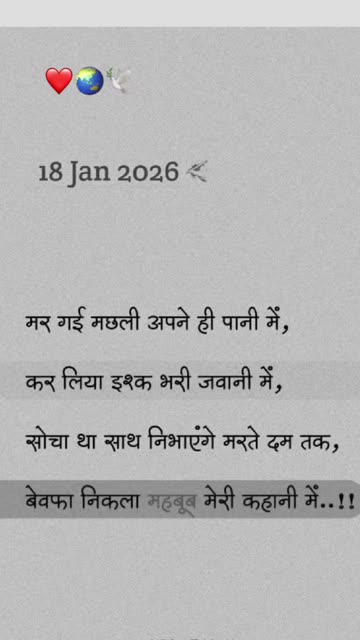 ❤️🌏🕊️
18 Jan 2026
मर गई मछली अपने ही पानी में,
कर लिया इश्क भरी जवानी में,
सोचा था साथ निभाएंगे मरते दम तक,
बेवफा निकला महबूब मेरी कहानी में..!!